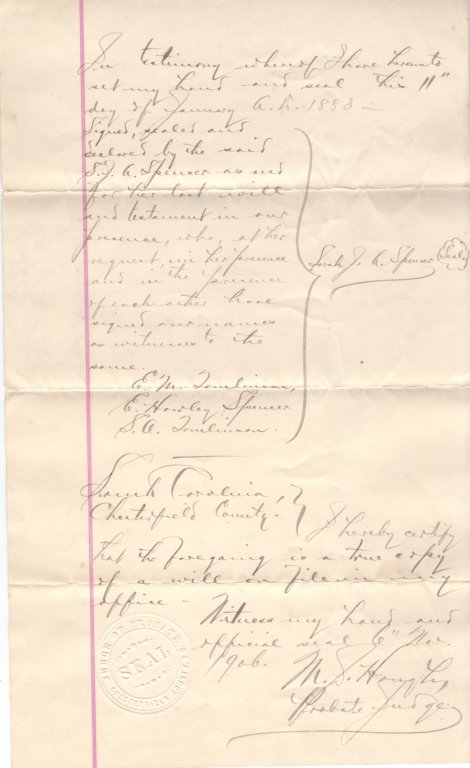 In testimony whereof I have hereunto
set my hand and seal this 11"
day of January A.D. 1883 -
Signed, sealed and
declared by the said
S. J. A. Spencer as and
for her last will
and testament in our
presence, who, at her
request, in her presence
and in the presence
of each other have
signed our names
as witnesses to the
same.
Sarah J. A. Spencer (Seal)
E. M. Tomlinson,
E. Howley Spencer
S. A. Tomlinson.
South Carolina,
Chesterfield County.
I hereby certify
that the foregoing is a true copy
of a will on file in my
office -
Witness my hand and
official seal 6" Nov.
1906.
M. J. Hough,
Probate Judge
JUDGE OF PROBATE
SEAL
CHESTERFIELD COUNTY